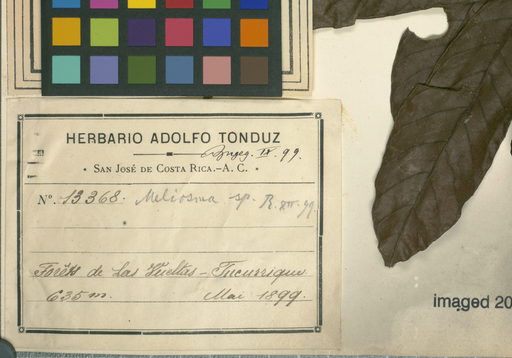 HERBARIO ADOLFO TONDUZ
IV. 99.
• SAN JOSÉ DE COSTA RICA.–A. C. •
Nº. 13368. Meliosma sp. R. XII-99
Forêts de Las Vueltas – Tucurrique
635 m. Mai 1899.
imaged 20